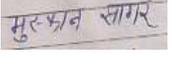 मुस्कान सागर